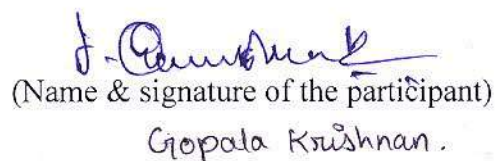 (Name & signature of the participant)
Gopala Krishnan.